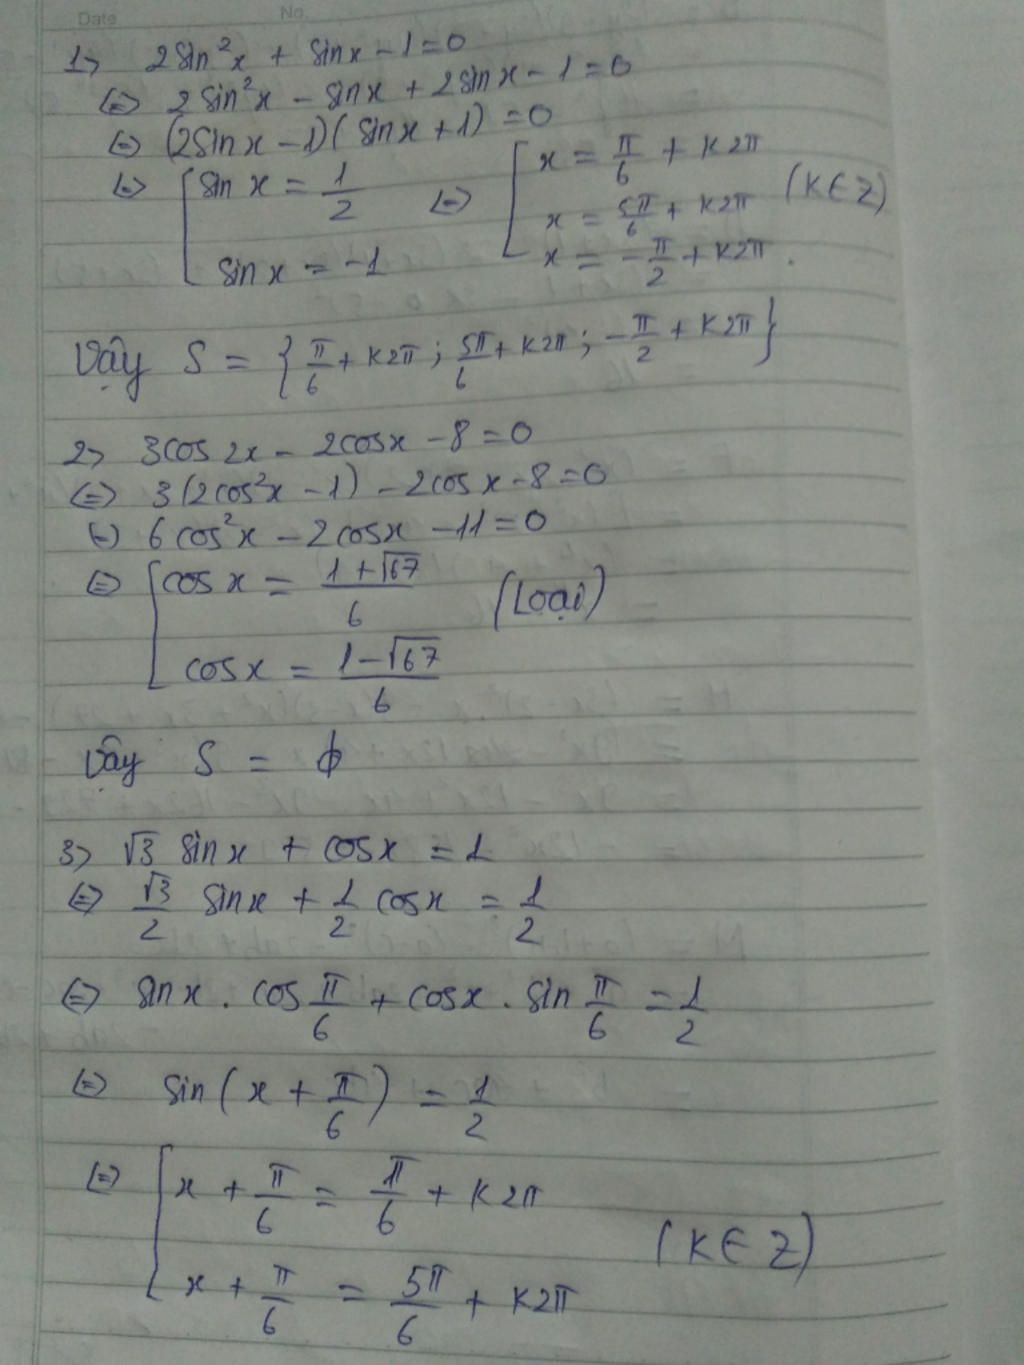 Date No.
1> 2sin²x + sinx - 1 = 0
<=> 2sin²x - sinx + 2sinx - 1 = 0
<=> (2sinx - 1)(sinx + 1) = 0
<=> [ sin x = 1/2 <=> [ x = π/6 + k2π
x = 5π/6 + k2π (k ∈ Z)
sinx = -1 x = -π/2 + k2π.
Vậy S = { π/6 + k2π ; 5π/6 + k2π ; -π/2 + k2π }
2> 3cos2x - 2cosx - 8 = 0
<=> 3(2cos²x - 1) - 2cosx - 8 = 0
<=> 6cos²x - 2cosx - 11 = 0
<=> [ cosx = (1 + √67)/6 (Loại)
cosx = (1 - √67)/6
Vậy S = ϕ
3> √3 sinx + cosx = 1
<=> √3/2 sinx + 1/2 cosx = 1/2
<=> sinx . cos π/6 + cosx . sin π/6 = 1/2
<=> sin(x + π/6) = 1/2
<=> [ x + π/6 = π/6 + k2π
(k ∈ Z)
x + π/6 = 5π/6 + k2π